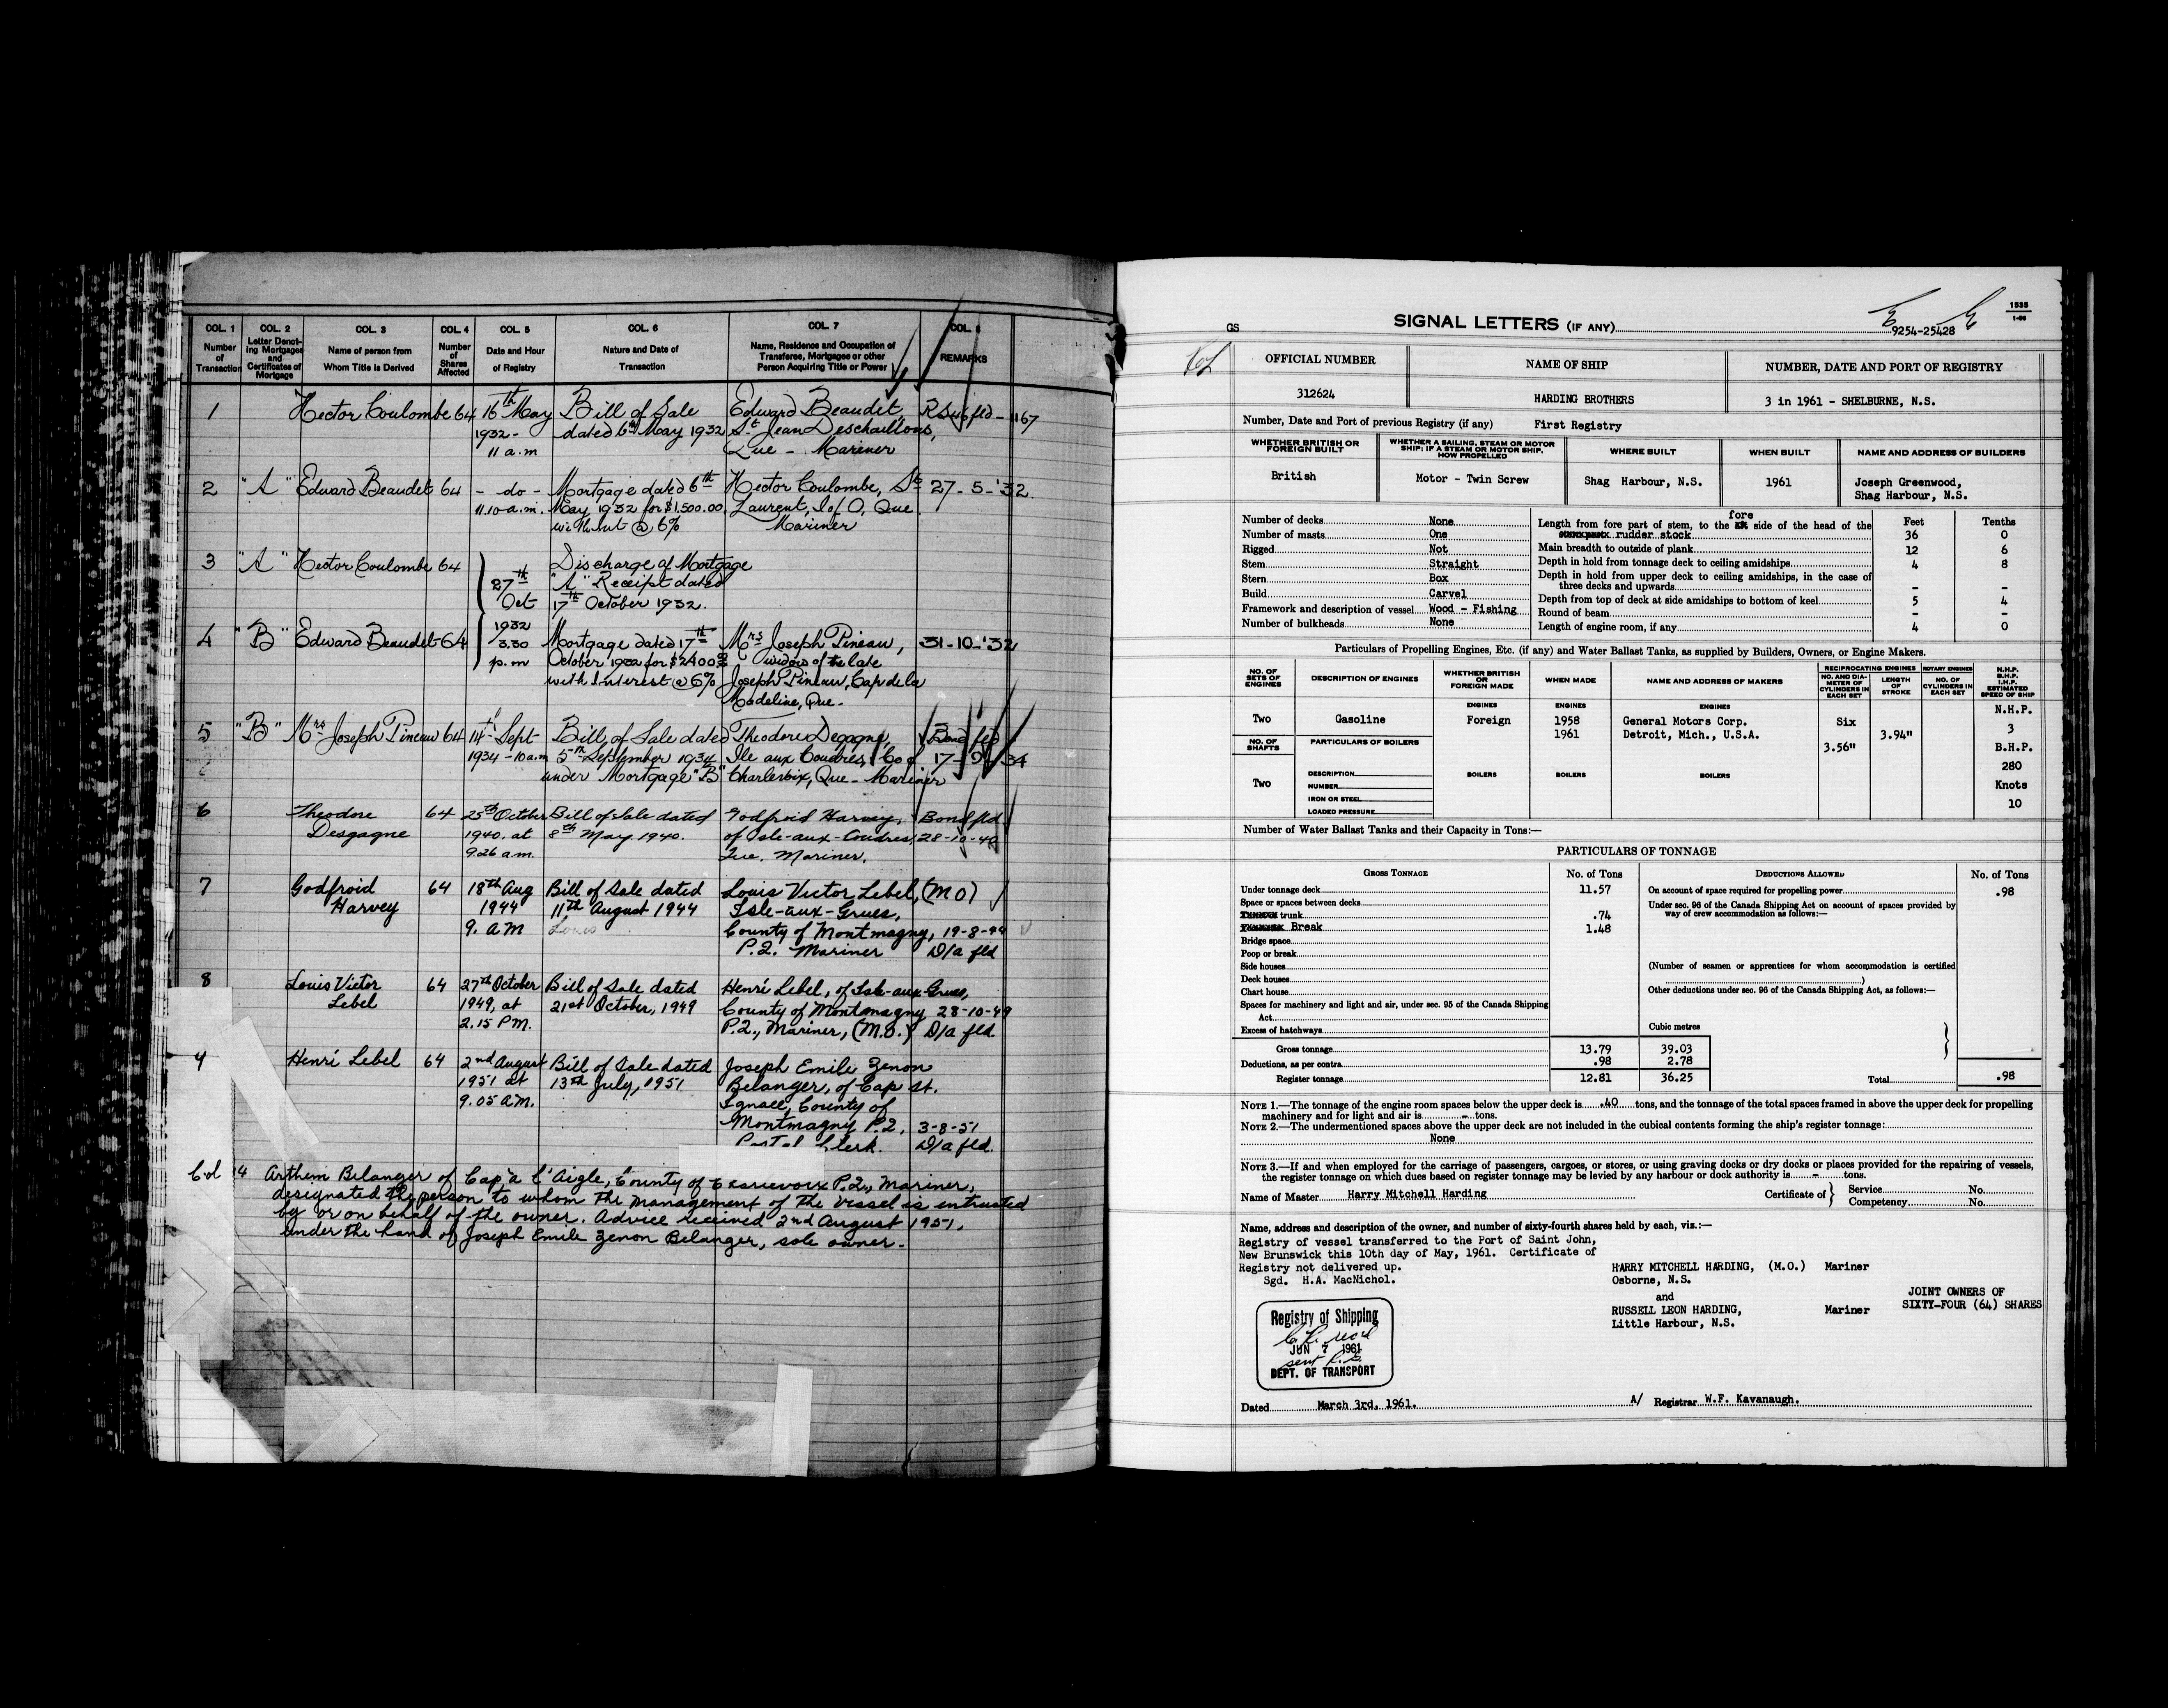 COL. 1 COL. 2 COL. 3 COL. 4 COL. 5 COL. 6 COL. 7 COL. 8
Number of Transaction
Letter Denoting Mortgages and Certificates of Mortgage
Name of person from Whom Title is Derived
Number of Shares Affected
Date and Hour of Registry
Nature and Date of Transaction
Name, Residence and Occupation of Transferee, Mortgagee or other Person Acquiring Title or Power
REMARKS
1 Hector Coulombe 64 16th May Bill of Sale Edward Beaudet, 1167
1932 - dated 6th May 1932 St. Jean Deschaillons,
11 a.m Que - Mariner
2 "A" Edward Beaudet 64 - do - Mortgage dated 6th Hector Coulombe, St. 27-5-'32.
11.10 a.m. May 1932 for $1,500.00 Laurent, I of O, Que
@ 6% Mariner
3 "A" Hector Coulombe 64 Discharge of Mortgage
27th "A" Receipt dated
Oct 17th October 1932.
1932
4 "B" Edward Beaudet 64 3.30 Mortgage dated 17th Mrs Joseph Pineau, 31-10-'32
p.m October 1932 for $2400.00 widow of the late
with Interest @ 6% Joseph Pineau, Cap de la
Madeline, Que-
5 "B" Mrs Joseph Pineau 64 14th Sept Bill of Sale dated Theodore Degagne, Bond fld
1934 - 10 a.m 5th September 1934 Ile aux Coudres, Co of 17-9-34
under Mortgage "B" Charlevoix, Que - Mariner
6 Theodore 64 25th October Bill of Sale dated Godfroid Harvey, Bond fld.
Desgagne 1940. at 8th May 1940. of Isle-aux-Coudres, 28-10-40
9.26 a.m. Que. Mariner.
7 Godfroid 64 18th Aug Bill of Sale dated Louis Victor Lebel, (MO)
Harvey 1944 11th August 1944 Isle-aux-Grues,
9. A.M Louis County of Montmagny, 19-8-44
P.Q. Mariner D/a fld
8 Louis Victor 64 27th October Bill of Sale dated Henri Lebel, of Isle-aux-Grues,
Lebel 1949, at 21st October, 1949 County of Montmagny 28-10-49
2.15 P.M. P.Q., Mariner, (M.O.) D/a fld.
9 Henri Lebel 64 2nd August Bill of Sale dated Joseph Emile Zenon
1951 at 13th July, 1951 Belanger, of Cap St.
9.05 A.M. Ignace, County of
Montmagny P.Q. 3-8-51
Postal Clerk. D/a fld.
Col 4 Arthem Belanger of Cap à l'Aigle, County of Charlevoix P.Q., Mariner,
designated the person to whom the management of the vessel is entrusted
by or on behalf of the owner. Advice received 2nd August 1951,
under the hand of Joseph Emile Zenon Belanger, sole owner.
1535
1-56
GS SIGNAL LETTERS (IF ANY) 9254-25428
OFFICIAL NUMBER NAME OF SHIP NUMBER, DATE AND PORT OF REGISTRY
312624 HARDING BROTHERS 3 in 1961 - SHELBURNE, N.S.
Number, Date and Port of previous Registry (if any) First Registry
WHETHER BRITISH OR FOREIGN BUILT
WHETHER A SAILING, STEAM OR MOTOR SHIP; IF A STEAM OR MOTOR SHIP, HOW PROPELLED
WHERE BUILT WHEN BUILT NAME AND ADDRESS OF BUILDERS
British Motor - Twin Screw Shag Harbour, N.S. 1961 Joseph Greenwood,
Shag Harbour, N.S.
Number of decks None
Number of masts One
Rigged Not
Stem Straight
Stern Box
Build Carvel
Framework and description of vessel Wood - Fishing
Number of bulkheads None
Feet Tenths
fore
Length from fore part of stem, to the side of the head of the
rudder stock 36 0
Main breadth to outside of plank 12 6
Depth in hold from tonnage deck to ceiling amidships 4 8
Depth in hold from upper deck to ceiling amidships, in the case of
three decks and upwards - -
Depth from top of deck at side amidships to bottom of keel 5 4
Round of beam - -
Length of engine room, if any 4 0
Particulars of Propelling Engines, Etc. (if any) and Water Ballast Tanks, as supplied by Builders, Owners, or Engine Makers.
NO. OF SETS OF ENGINES
DESCRIPTION OF ENGINES
WHETHER BRITISH OR FOREIGN MADE
WHEN MADE
NAME AND ADDRESS OF MAKERS
RECIPROCATING ENGINES ROTARY ENGINES
NO. AND DIAMETER OF CYLINDERS IN EACH SET
LENGTH OF STROKE
NO. OF CYLINDERS IN EACH SET
N.H.P. B.H.P. I.H.P. ESTIMATED SPEED OF SHIP
ENGINES ENGINES ENGINES N.H.P.
Two Gasoline Foreign 1958 General Motors Corp. Six 3
1961 Detroit, Mich., U.S.A. 3.94"
NO. OF SHAFTS PARTICULARS OF BOILERS 3.56" B.H.P.
280
DESCRIPTION BOILERS BOILERS BOILERS
Two NUMBER Knots
IRON OR STEEL 10
LOADED PRESSURE
Number of Water Ballast Tanks and their Capacity in Tons:—
PARTICULARS OF TONNAGE
GROSS TONNAGE No. of Tons DEDUCTIONS ALLOWED No. of Tons
Under tonnage deck 11.57 On account of space required for propelling power .98
Space or spaces between decks
trunk .74
Break 1.48
Bridge space
Poop or break
Side houses
Deck houses
Chart house
Spaces for machinery and light and air, under sec. 95 of the Canada Shipping
Act
Excess of hatchways
Under sec. 96 of the Canada Shipping Act on account of spaces provided by
way of crew accommodation as follows:—
(Number of seamen or apprentices for whom accommodation is certified
)
Other deductions under sec. 96 of the Canada Shipping Act, as follows:—
Cubic metres
Gross tonnage 13.79 39.03
Deductions, as per contra .98 2.78
Register tonnage 12.81 36.25 Total .98
NOTE 1.—The tonnage of the engine room spaces below the upper deck is .40 tons, and the tonnage of the total spaces framed in above the upper deck for propelling
machinery and for light and air is - tons.
NOTE 2.—The undermentioned spaces above the upper deck are not included in the cubical contents forming the ship's register tonnage:
None
NOTE 3.—If and when employed for the carriage of passengers, cargoes, or stores, or using graving docks or dry docks or places provided for the repairing of vessels,
the register tonnage on which dues based on register tonnage may be levied by any harbour or dock authority is - tons.
Name of Master Harry Mitchell Harding Certificate of Service No.
Competency No.
Name, address and description of the owner, and number of sixty-fourth shares held by each, viz.:—
Registry of vessel transferred to the Port of Saint John,
New Brunswick this 10th day of May, 1961. Certificate of
Registry not delivered up.
Sgd. H.A. MacNichol.
HARRY MITCHELL HARDING, (M.O.) Mariner
Osborne, N.S.
and
RUSSELL LEON HARDING, Mariner
Little Harbour, N.S.
JOINT OWNERS OF
SIXTY-FOUR (64) SHARES
Registry of Shipping
JUN 7 1961
DEPT. OF TRANSPORT
Dated March 3rd, 1961. A/ Registrar W.F. Kavanaugh.